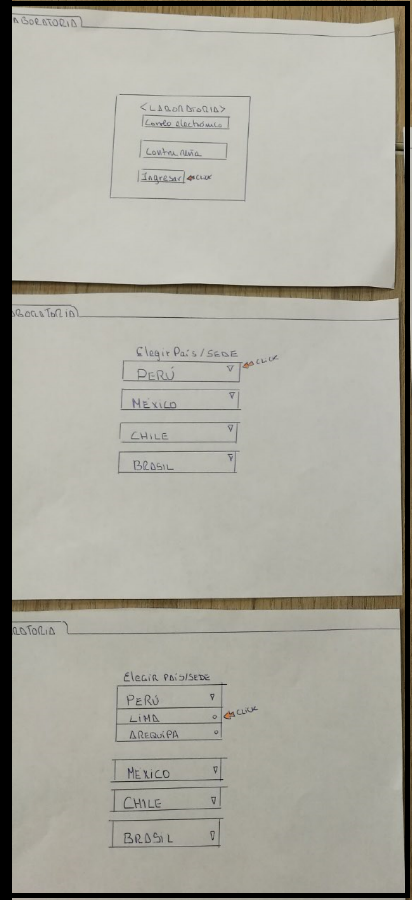 ABORATORIA
<LABORATORIA>
Correo electrónico
Contraseña
Ingresar CLICK
ABORATORIA
Elegir País/SEDE
PERÚ CLICK
MÉXICO
CHILE
BRASIL
RATORIA
ELEGIR PAÍS/SEDE
PERÚ
LIMA CLICK
AREQUIPA
MEXICO
CHILE
BRASIL